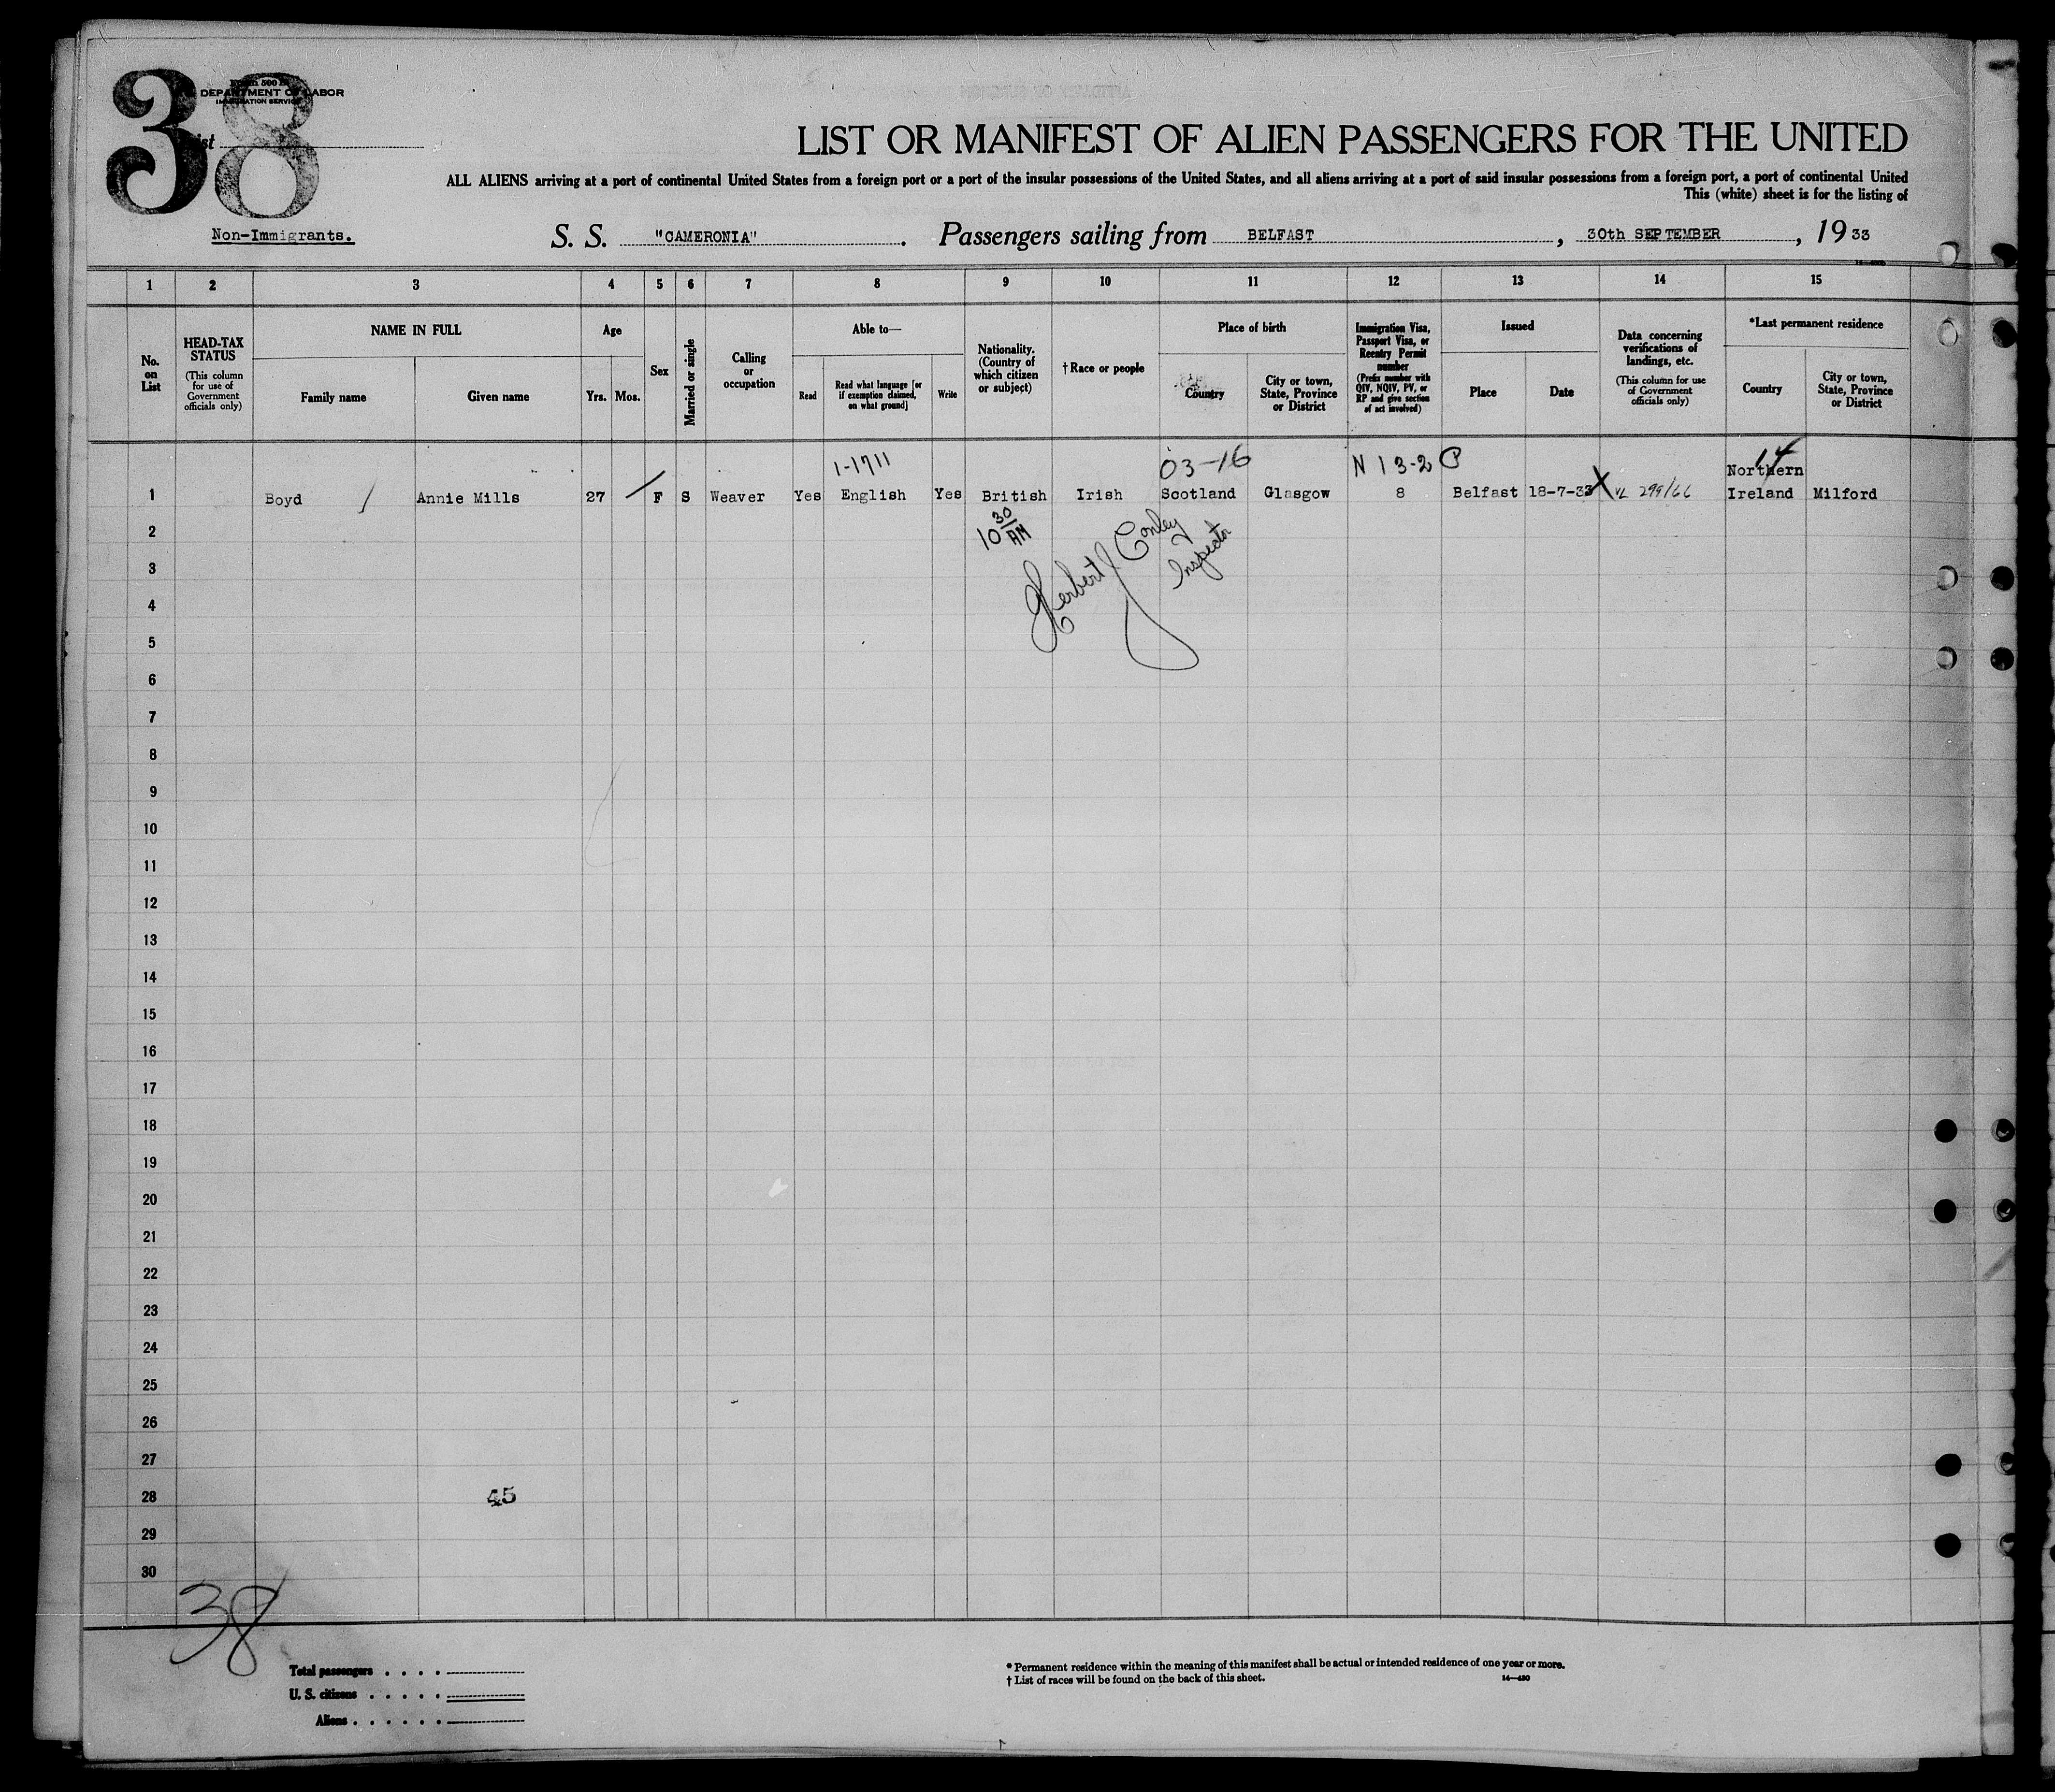 38
Form 500
DEPARTMENT OF LABOR
IMMIGRATION SERVICE
List
LIST OR MANIFEST OF ALIEN PASSENGERS FOR THE UNITED
ALL ALIENS arriving at a port of continental United States from a foreign port or a port of the insular possessions of the United States, and all aliens arriving at a port of said insular possessions from a foreign port, a port of continental United
This (white) sheet is for the listing of
Non-Immigrants.
S. S. "CAMERONIA". Passengers sailing from BELFAST, 30th SEPTEMBER, 1933
1 2 3 4 5 6 7 8 9 10 11 12 13 14 15
No. on List
HEAD-TAX STATUS (This column for use of Government officials only)
NAME IN FULL
Family name
Given name
Age
Yrs. Mos.
Sex
Married or single
Calling or occupation
Able to—
Read
Read what language [or if exemption claimed, on what ground]
Write
Nationality. (Country of which citizen or subject)
† Race or people
Place of birth
Country
City or town, State, Province or District
Immigration Visa, Passport Visa, or Reentry Permit number (Prefix number with QIV, NQIV, PV, or RP and give section of act involved)
Issued
Place
Date
Data concerning verifications of landings, etc. (This column for use of Government officials only)
*Last permanent residence
Country
City or town, State, Province or District
1-1711 03-16 N 13-2 P 14
Northern
1 Boyd Annie Mills 27 F S Weaver Yes English Yes British Irish Scotland Glasgow 8 Belfast 18-7-33 X VL 299/66 Ireland Milford
10 30 AM
Herbert J Conley
Inspector
2
3
4
5
6
7
8
9
10
11
12
13
14
15
16
17
18
19
20
21
22
23
24
25
26
27
28
45
29
30
38
Total passengers
U. S. citizens
Aliens
* Permanent residence within the meaning of this manifest shall be actual or intended residence of one year or more.
† List of races will be found on the back of this sheet.
14—430